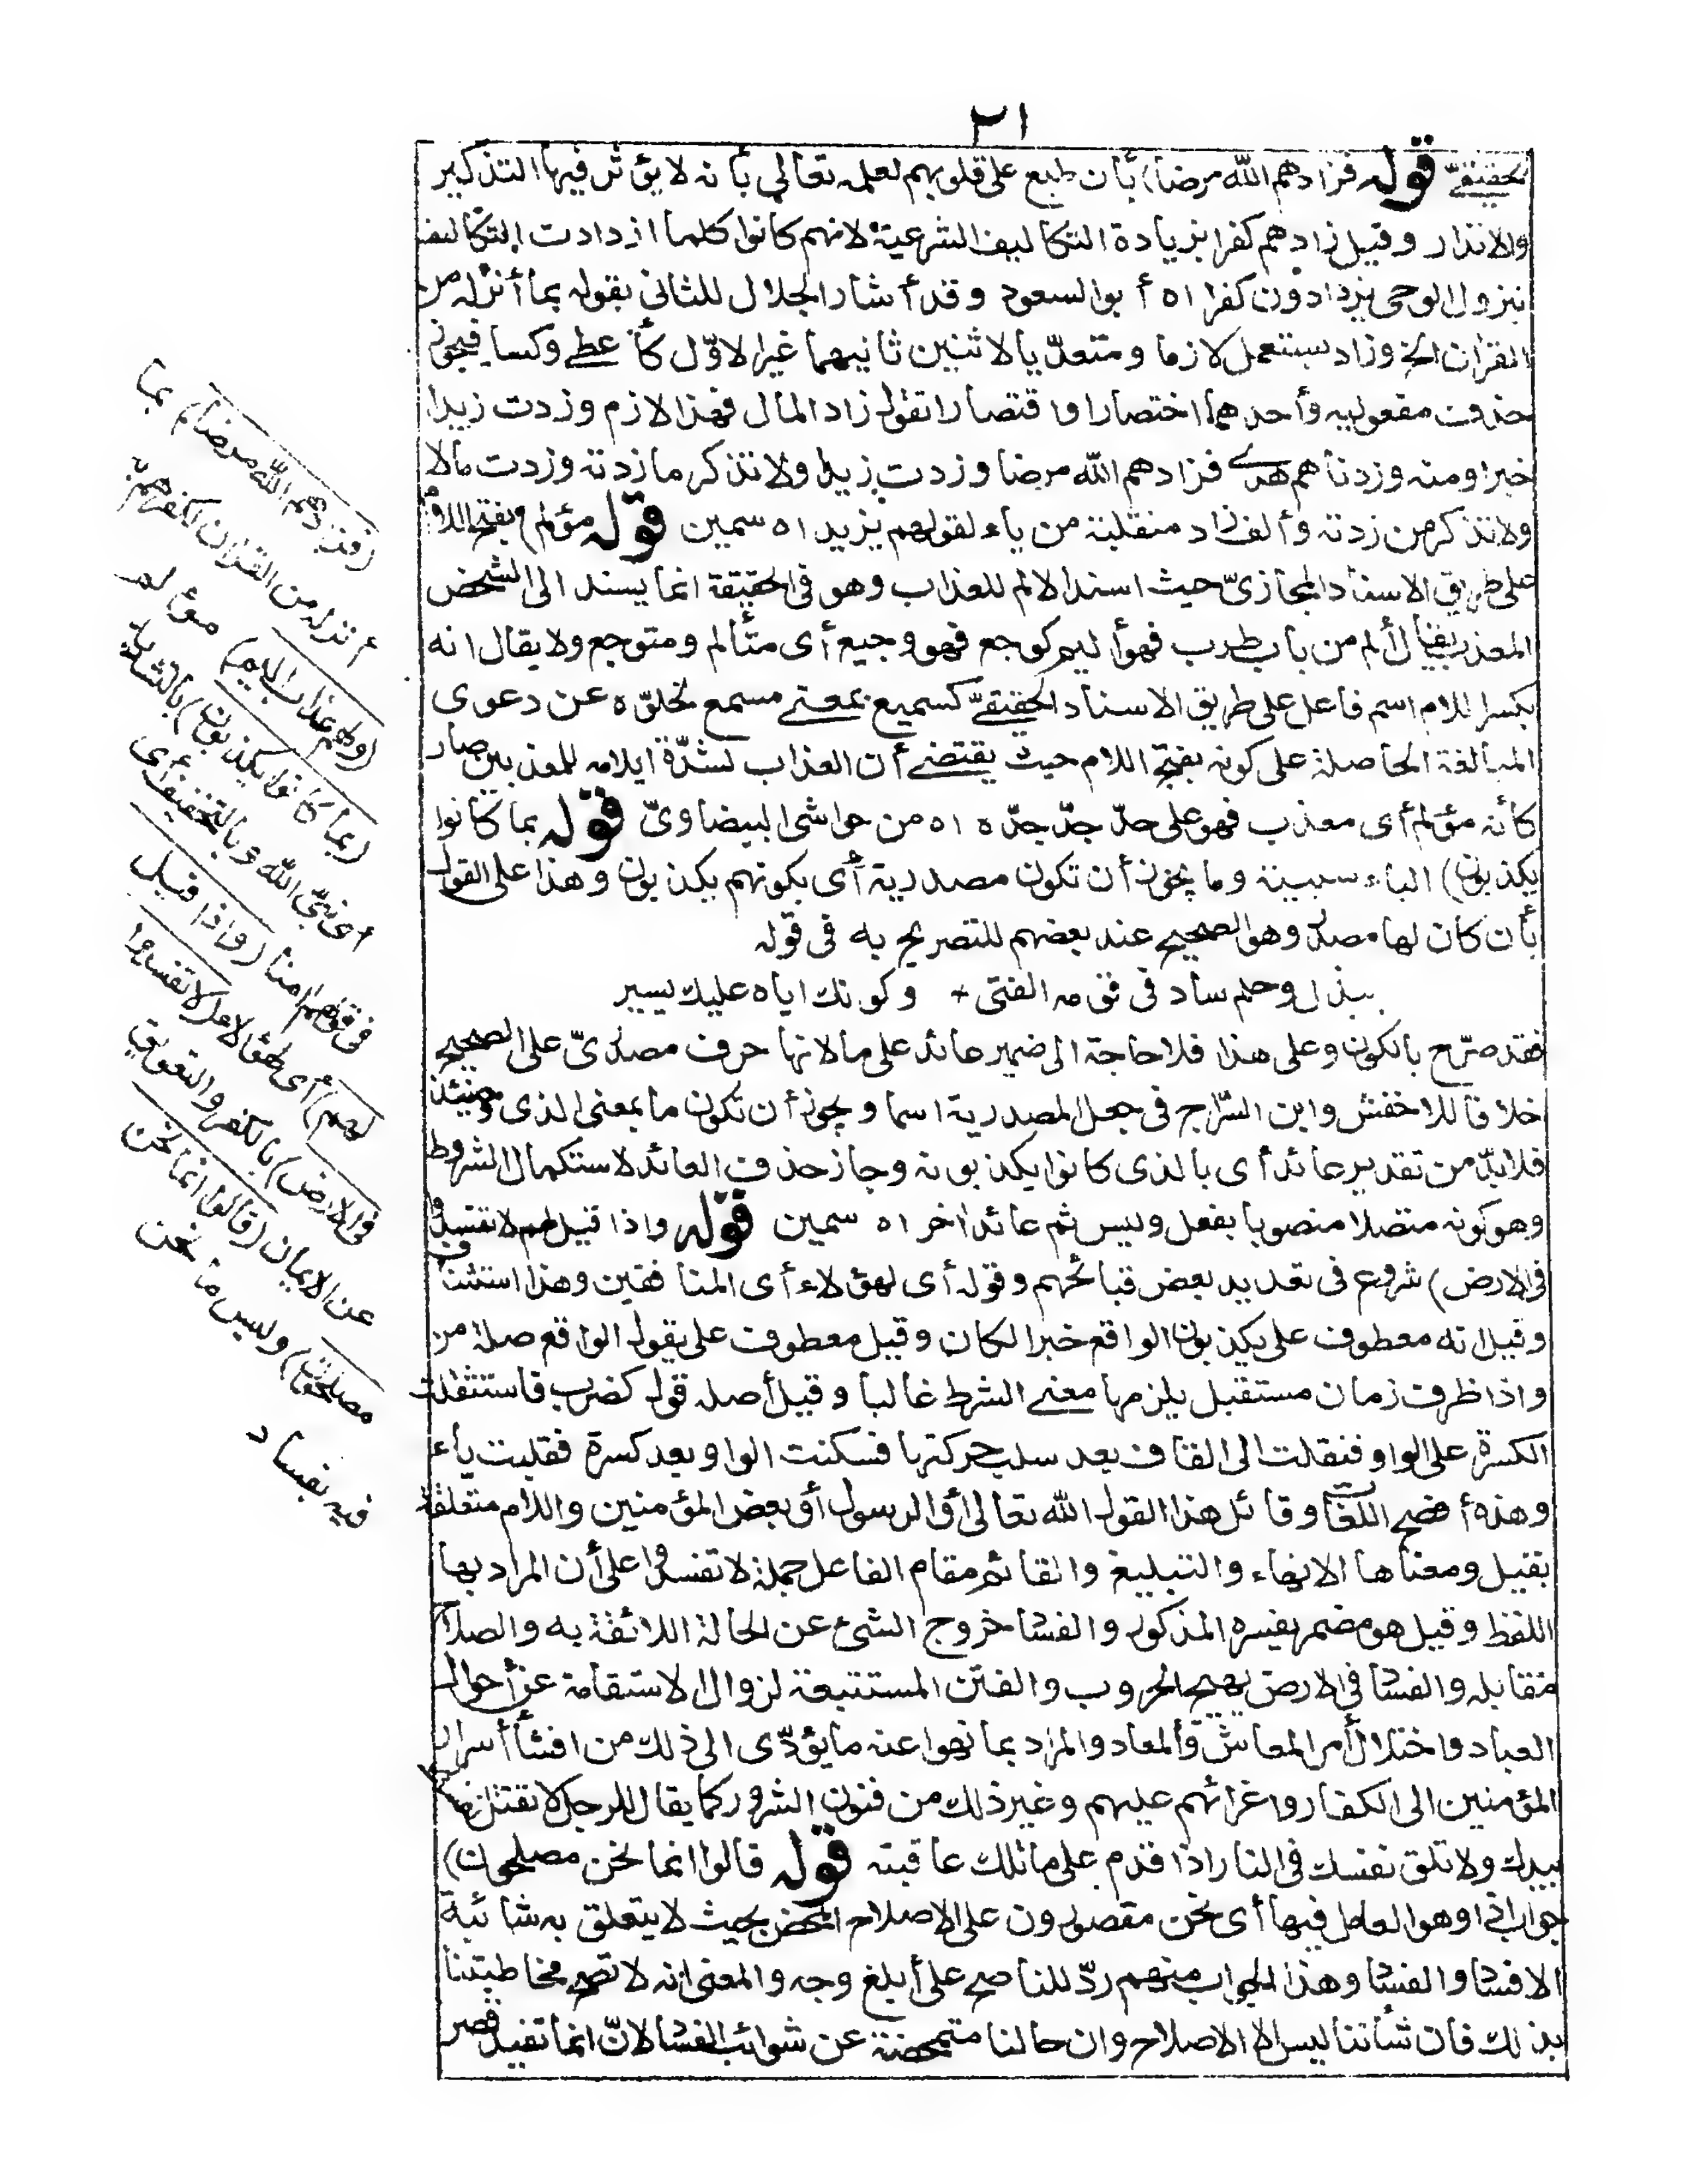 ٢١
تحقيقيّ قوله فزادهم الله مرضا) بأن طبع على قلوبهم لعلمه تعالى بأنه لا يؤثر فيها التذكير
والانذار وقيل زادهم كفرا بزيادة التكاليف الشرعية لانهم كانوا كلما ازدادت التكاليف
بنزول الوحى يزدادون كفرا اه أبو السعود وقد أشار الجلال للثانى بقوله بما أنزله من
القرآن الخ وزاد يستعمل لازما ومتعديا لاثنين ثانيهما غير الاوّل كأعطى وكسا فيجوز
حذف مفعوليه وأحدهما اختصارا واقتصارا تقول زاد المال فهذا لازم وزدت زيدا
خيرا ومنه وزدناهم هدى فزادهم الله مرضا وزدت زيدا ولا تذكر ما زدته وزدت مالا
ولا تذكر من زدته وألف زاد منقلبة من ياء لقولهم يزيد اه سمين قوله مؤلم) بفتح اللام
على طريق الاسناد المجازىّ حيث اسند الالم للعذاب وهو فى الحقيقة انما يسند الى الشخص
المعذب يقال ألم من باب طرب فهو أليم كوجع فهو وجيع أى متألم ومتوجع ولا يقال انه
بكسر اللام اسم فاعل على طريق الاسناد الحقيقىّ كسميع بمعنى مسمع لخلوّه عن دعوى
المبالغة الحاصلة على كونه بفتح اللام حيث يقتضى أن العذاب لشدّة ايلامه للمعذبين صار
كأنه مؤلم أى معذب فهو على حدّ جدّ جدّه اه من حواشى البيضاوىّ قوله بما كانوا
يكذبون) الباء سببية وما يجوز أن تكون مصدرية أى بكونهم يكذبون وهذا على القول
بأن كان لها مصدر وهو الصحيح عند بعضهم للتصريح به فى قوله
ببذل وحلم ساد فى قومه الفتى + وكونك اياه عليك يسير
فقد صرّح بالكون وعلى هذا فلا حاجة الى ضمير عائد على ما لانها حرف مصدرىّ على الصحيح
خلافا للاخفش وابن السّرّاج فى جعل المصدرية اسما ويجوز أن تكون ما بمعنى الذى وحينئذ
فلابدّ من تقدير عائد أى بالذى كانوا يكذبونه وجاز حذف العائد لاستكمال الشروط
وهو كونه متصلا منصوبا بفعل وليس ثم عائد آخر اه سمين قوله واذا قيل لهم لا تفسدوا
فى الارض) شروع فى تعديد بعض قبائحهم وقوله أى لهؤلاء أى المنافقين وهذا استئناف
وقيل انه معطوف على يكذبون الواقع خبرا لكان وقيل معطوف على يقول الواقع صلة من
واذا ظرف زمان مستقبل يلزمها معنى الشرط غالبا وقيل أصله قول كضرب فاستثقلت
الكسرة على الواو فنقلت الى القاف بعد سلب حركتها فسكنت الواو بعد كسرة فقلبت ياء
وهذه أفصح اللغات وقائل هذا القول الله تعالى أو الرسول أو بعض المؤمنين واللام متعلقة
بقيل ومعناها الانهاء والتبليغ والقائم مقام الفاعل جملة لا تفسدوا على أن المراد بها
اللفظ وقيل هو مضمر يفسره المذكور والفساد خروج الشئ عن الحالة اللائقة به والصلاح
مقابله والفساد فى الارض تهييج الحروب والفتن المستتبعة لزوال الاستقامة عن أحوال
العباد واختلال أمر المعاش والمعاد والمراد بما نهوا عنه ما يؤدّى الى ذلك من افشاء أسرار
المؤمنين الى الكفار واغرائهم عليهم وغير ذلك من فنون الشرور كما يقال للرجل لا تقتل نفسك
بيدك ولا تلق نفسك فى النار اذا قدم على ما تلك عاقبته قوله قالوا انما نحن مصلحون)
جواب اذا وهو العامل فيها أى نحن مقصورون على الاصلاح المحض بحيث لا يتعلق به شائبة
الافساد والفساد وهذا الجواب منهم ردّ للناصح على أبلغ وجه والمعنى انه لا تصح مخاطبتنا
بذلك فان شأننا ليس الا الاصلاح وان حالنا متمحضة عن شوائب الفساد لانّ انما تفيد قصر
(فزادهم الله مرضا) بما
أنزله من القرآن لكفرهم به
(ولهم عذاب أليم) مؤلم
(بما كانوا يكذبون) بالتشديد
أى نبىّ الله وبالتخفيف أى
فى قولهم آمنا (واذا قيل
لهم) أى لهؤلاء (لا تفسدوا
فى الارض) بالكفر والتعويق
عن الايمان (قالوا انما نحن
مصلحون) وليس ما نحن
فيه بفساد